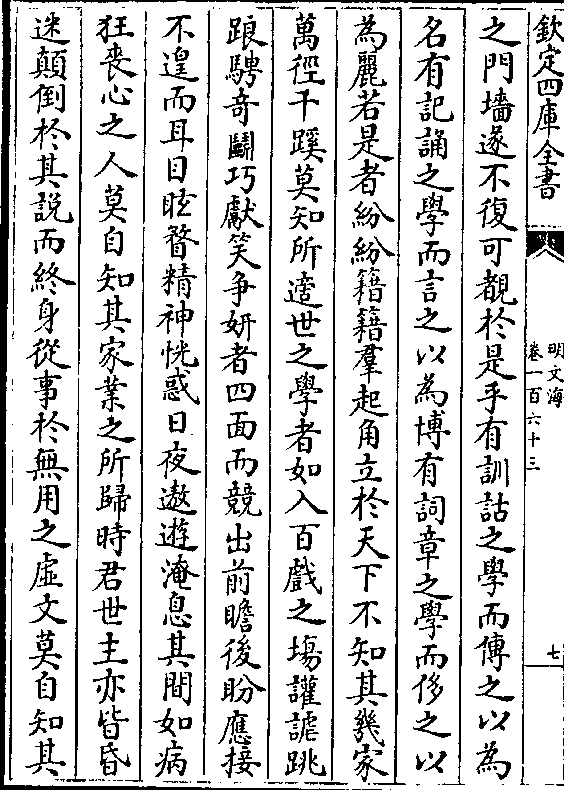 欽定四庫全書
明文海
卷一百六十三
七
之門墻遂不復可覩於是乎有訓詁之學而傳之以為
名有記誦之學而言之以為博有詞章之學而侈之以
為麗若是者紛紛籍籍羣起角立於天下不知其幾家
萬徑千蹊莫知所適世之學者如入百戲之塲讙謔跳
踉騁奇鬭巧獻笑争妍者四面而競出前瞻後盼應接
不遑而耳目眩瞀精神恍惑日夜遨遊淹息其間如病
狂喪心之人莫自知其家業之所歸時君世主亦皆昏
迷顛倒於其說而終身從事於無用之虛文莫自知其